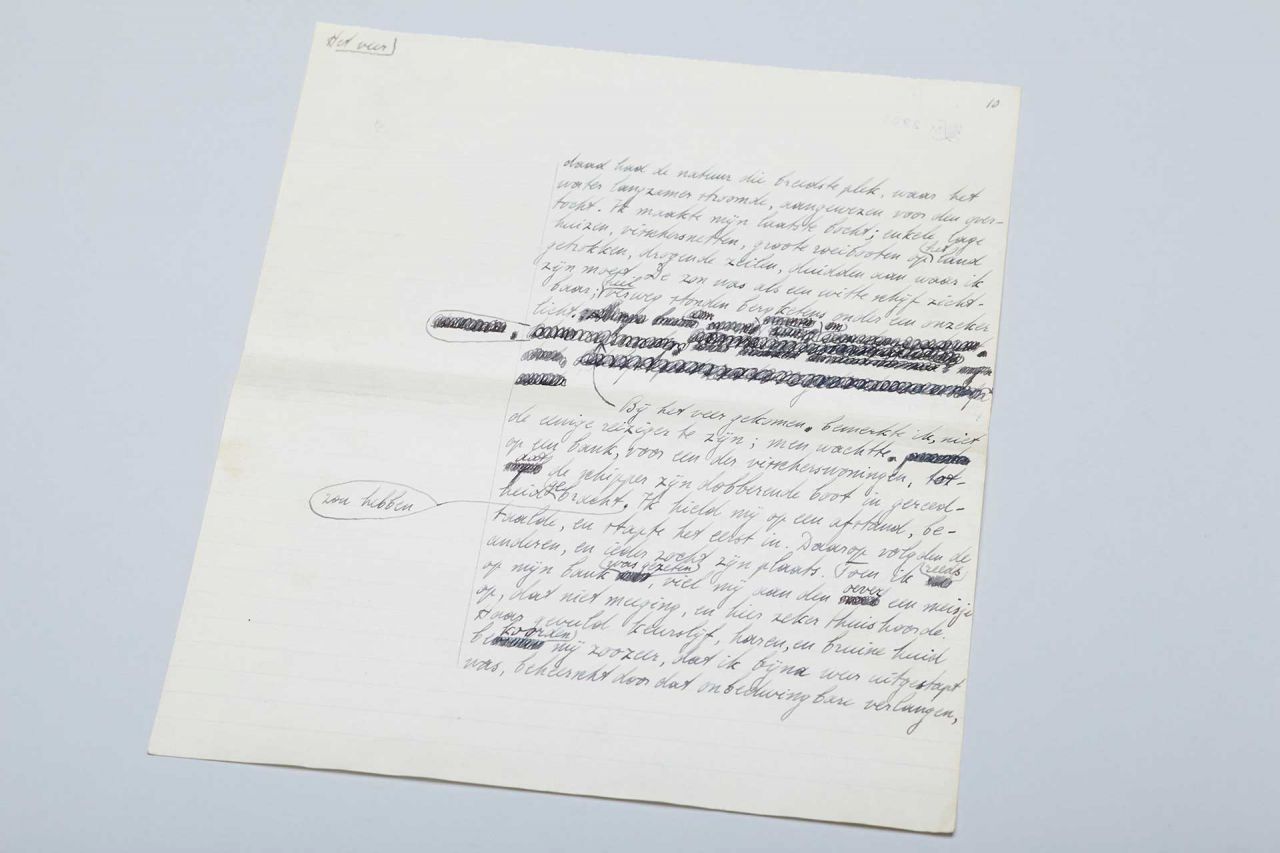 Het veer
10
daad had de natuur die breedste plek, waar het
water langzamer stroomde, aangewezen voor den over-
tocht. Ik maakte mijn laatste bocht; enkele lage
huizen, visschersnetten, groote roeibooten op het land
getrokken, drogende zeilen, duidden aan waar ik
zijn moest. De zon was als een witte schijf zicht-
baar; heel verweg stonden bergketens onder een onzeker
licht.
Bij het veer gekomen, bemerkte ik, niet
de eenige reiziger te zijn; men wachtte
op een bank, voor een der visscherswoningen, tot-
dat de schipper zijn dobberende boot in gereed-
heid gebracht. Ik hield mij op een afstand, be-
zou hebben
taalde, en stapte het eerst in. Daarop volgden de
anderen, en ieder zocht zijn plaats. Toen ik reeds
op mijn bank was gezeten, viel mij aan den oever een meisje
op, dat niet meeging, en hier zeker thuishoorde.
Haar gevuld keurslijf, haren, en bruine huid
bekoorden mij zoozeer, dat ik bijna weer uitgestapt
was, beheerscht door dat onbedwingbare verlangen,